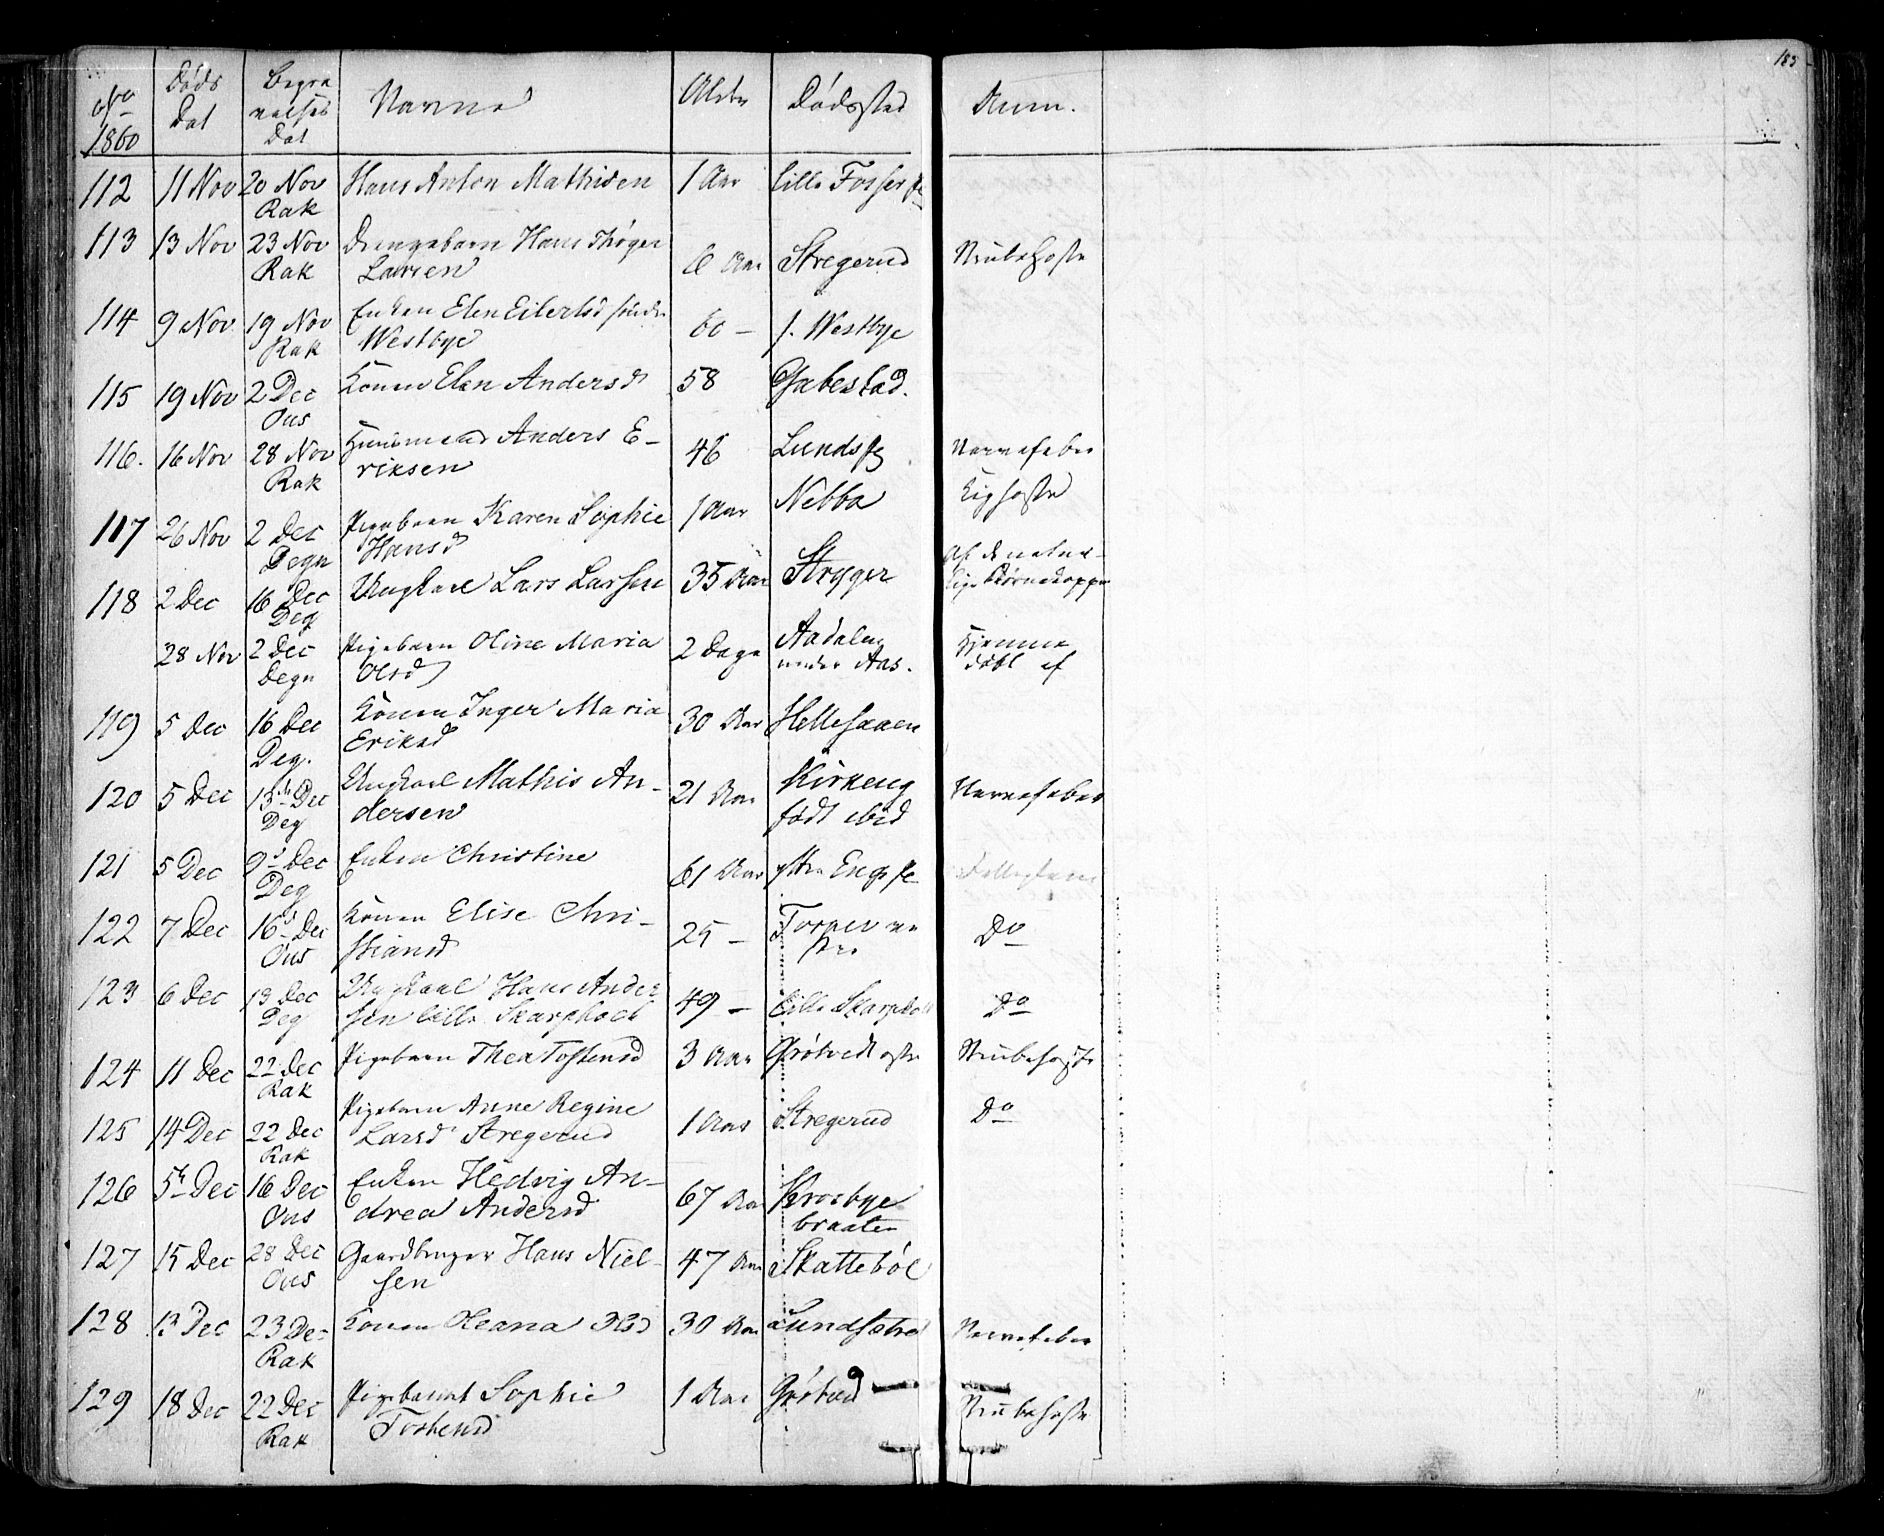 183
No 1860 Døds Dat Begravelses Dat Navne Alder Dødssted Anm.
112 11 Nov 20 Nov Rak Hans Anton Mathisen 1 Aar Lille Fosser
113 13 Nov 23 Nov Rak Drengebarn Hans Thøger Larsen 6 Aar Stregerud Strubehoste
114 9 Nov 19 Nov Rak Enken Elen Eilertsd søndre Westbye 60 – s. Westbye
115 19 Nov 2 Dec Øus Konen Elen Andersd 58 Gabestad.
116. 16 Nov 28 Nov Rak Huusmand Anders E-riksen 46 Lunds Nervefeber
117 26 Nov 2 Dec Degn Pigebarn Karen Sophie Hansd 1 Aar Nebba Kighoste
118 2 Dec 16 Dec Deg Ungkarl Lars Larsen 35 Aar Stryger Af de naturlige Børnekopper
28 Nov 2 Dec Degn Pigebarn Oline Maria Olsd 2 Dage Aadalen under Aas. Hjemmedøbt af
119 5 Dec 16 Dec Deg. Konen Inger Maria Eriksd 30 Aar Hellesaaen
120 5 Dec 15 Dec Deg Ungkarl Mathis An-dersen 21 Aar Kirkeng født ibid Nervefeber
121 5 Dec 9 Dec Deg Enken Christine 61 Aar ytre Engs
122 7 Dec 16 Dec Øus Konen Elise Chri-stiansd 25 – Torper Do
123 6 Dec 19 Dec Deg Ungkarl Hans Andersen lille Skarpholt 49 – Lille Skarpholt Do
124 11 Dec 22 Dec Rak Pigebarn Thea Tostensd 3 Aar Grøtvedt Strubehoste
125 14 Dec 22 Dec Rak Pigebarn Anne Regine Larsd Stregerud 1 Aar Stregerud Do
126 5 Dec 16 Dec Øus Enken Hedvig An-drea Andersd 67 Aar Krosbye braaten
127 15 Dec 28 Dec Øus Gaardbruger Hans Niel-sen 47 Aar Skattebøl
128 13 Dec 23 Dec Rak Konen Oleana Olsd 30 Aar Lundsstad Nervefeber
129 18 Dec 22 Dec Rak Pigebarnet Sophie Tostensd 1 Aar Grøtved Strubehoste